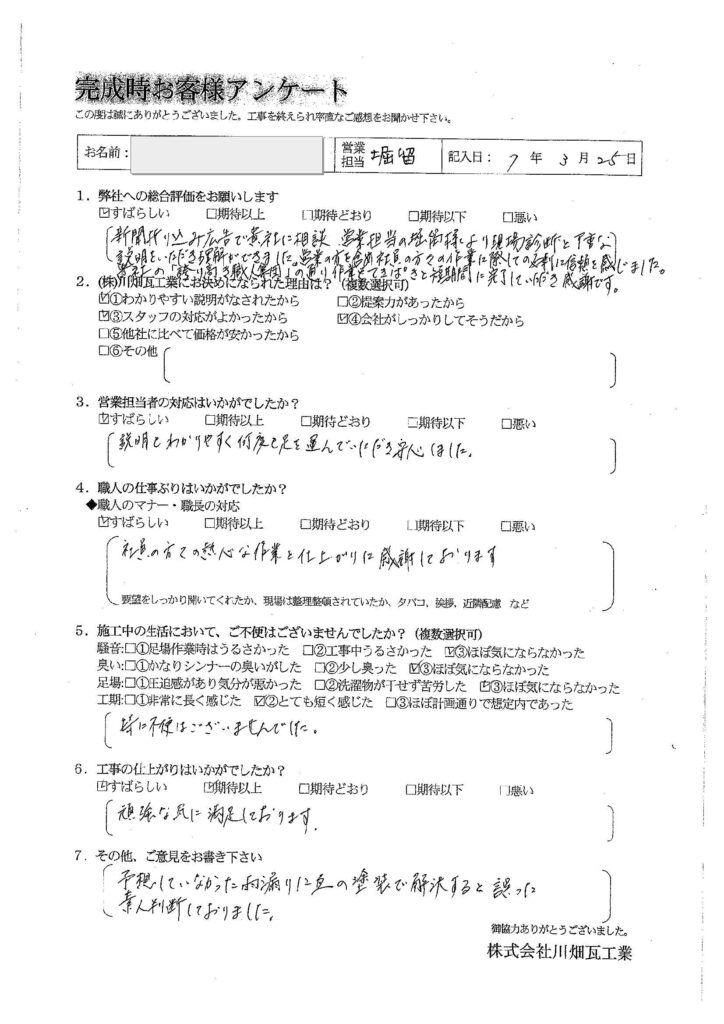 完成時お客様アンケート
この度は誠にありがとうございました。工事を終えられ率直なご感想をお聞かせ下さい。
お名前： 営業担当 堀留 記入日： 7 年 3 月 25 日
1．弊社への総合評価をお願いします
☑すばらしい □期待以上 □期待どおり □期待以下 □悪い
新聞折り込み広告で貴社に相談 営業担当の堀留様より現場診断と丁重な
説明をいただき理解ができました。営業の方を含め社員の方々の作業に際しての に信頼を感じました。
貴社の「誇り高き職人集団」の通り作業もてきぱきと短期間に完了していただき感謝です。
2．(株)川畑瓦工業にお決めになられた理由は？（複数選択可）
☑①わかりやすい説明がなされたから □②提案力があったから
☑③スタッフの対応がよかったから ☑④会社がしっかりしてそうだから
□⑤他社に比べて価格が安かったから
□⑥その他
3．営業担当者の対応はいかがでしたか？
☑すばらしい □期待以上 □期待どおり □期待以下 □悪い
説明もわかりやすく何度も足を運んでいただき安心しました。
4．職人の仕事ぶりはいかがでしたか？
◆職人のマナー・職長の対応
☑すばらしい □期待以上 □期待どおり □期待以下 □悪い
社員の方々の熱心な作業と仕上がりに感謝しております
要望をしっかり聞いてくれたか、現場は整理整頓されていたか、タバコ、挨拶、近隣配慮 など
5．施工中の生活において、ご不便はございませんでしたか？（複数選択可）
騒音:□①足場作業時はうるさかった □②工事中うるさかった ☑③ほぼ気にならなかった
臭い:□①かなりシンナーの臭いがした □②少し臭った ☑③ほぼ気にならなかった
足場:□①圧迫感があり気分が悪かった □②洗濯物が干せず苦労した ☑③ほぼ気にならなかった
工期:□①非常に長く感じた ☑②とても短く感じた □③ほぼ計画通りで想定内であった
特に不便はございませんでした。
6．工事の仕上がりはいかがでしたか？
☑すばらしい ☑期待以上 □期待どおり □期待以下 □悪い
頑強な瓦に満足しております。
7．その他、ご意見をお書き下さい
予想していなかった雨漏りに瓦の塗装で解決すると誤った
素人判断しておりました。
御協力ありがとうございました。
株式会社川畑瓦工業